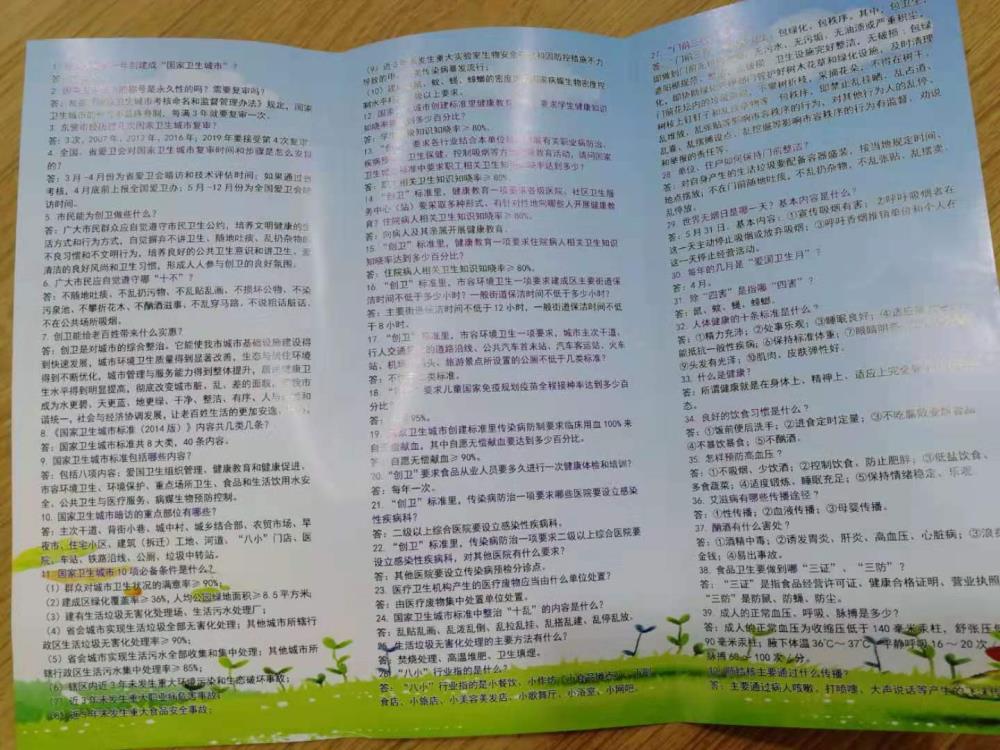 年创建成“国家卫生城市”?
的称号是永久性的吗?需要复审吗?
答:根据《国家卫生城市考核命名和监督管理办法》规定,国家
卫生城市 每满3年就要复审一次。
3、东营市经历过几次国家卫生城市复审?
答:3次,2007年、2012年、2016年;2019年要接受第4次复审。
4、全国、省爱卫会对国家卫生城市复审时间和步骤是怎么安排
的?
答:3月-4月份为省爱卫会暗访和技术评估时间;如果通过省
考核,4月底前上报全国爱卫办;5月-12月份为全国爱卫会暗
访时间。
5、市民能为创卫做些什么?
答:广大市民群众应自觉遵守市民卫生公约,培养文明健康的生
活方式和行为方式,自觉摒弃不讲卫生、随地吐痰、乱扔杂物的
不良习惯和不文明行为,培养良好的公共卫生意识和讲卫生、爱
清洁的良好风尚和卫生习惯,形成人人参与创卫的良好氛围。
6、广大市民应自觉遵守哪“十不”?
答:不随地吐痰、不乱扔污物、不乱贴乱画、不损坏公物、不染
污泉池、不攀折花木、不酗酒滋事、不乱穿马路、不说粗话脏话、
不在公共场所吸烟。
7、创卫能给老百姓带来什么实惠?
答:创卫是对城市的综合整治。它能使我市城市基础设施建设得
到快速发展,城市环境卫生质量得到显著改善,生态与居住环境
得到不断优化,城市管理与服务能力得到整体提升,居民健康卫
生水平得到明显提高,彻底改变城市脏、乱、差的面貌,使我市
成为水更碧、天更蓝、地更绿、干净、整洁、有序、人与 和
谐统一,社会与经济协调发展,让老百姓生活的更加安逸、
8、《国家卫生城市标准(2014版)》内容共几类几条?
答:国家卫生城市标准共8大类,40条内容。
9、国家卫生城市标准包括哪些内容?
答:包括八项内容:爱国卫生组织管理、健康教育和健康促进、
市容环境卫生、环境保护、重点场所卫生、食品和生活饮用水安
全、公共卫生与医疗服务、病媒生物预防控制。
10、国家卫生城市暗访的重点部位有哪些?
答:主次干道、背街小巷、城中村、城乡结合部、农贸市场、早
夜市、住宅小区、建筑(拆迁)工地、河道、“八小”门店、医
院、车站、铁路沿线、公厕、垃圾中转站。
11、国家卫生城市10项必备条件是什么?
(1)群众对城市卫生状况的满意率≥90%;
(2)建成区绿化覆盖率≥36%,人均公园绿地面积≥8.5平方米;
(3)建有生活垃圾无害化处理场、生活污水处理厂;
(4)省会城市实现生活垃圾全部无害化处理;其他城市所辖行
政区生活垃圾无害化处理率≥90%;
(5)省会城市实现生活污水全部收集和集中处理;其他城市所
辖行政区生活污水集中处理率≥85%;
(6)辖区内近3年未发生重大环境污染和生态破坏事故;
(7)近3年未发生重大职业病危害事故;
(8)近3年未发生重大食品安全事故;
(9)近3年未发生重大实验室生物安全 和因防控措施不力
导致的甲 类传染病暴发流行;
(10) 鼠、蚊、蝇、蟑螂的密度 国家病媒生物密度控
制水平标准 级以上要求。
城市创建标准里健康教育 要求学生健康知识
知晓率达到多少百分比?
答: 级知识知晓率≥80%。
13、 要求各行业结合本单位 有关职业病防治、
疾病预防、卫生保健、控制吸烟等方 教育活动,请问国家
卫生城市标准中要求职工相关卫生知识知晓率达到多少?
答:职工相关卫生知识知晓率≥80%。
14、“创卫”标准里,健康教育一项要求各级医院、社区卫生服
务中心(站)要采取多种形式,有针对性地向哪些人开展健康教
育?住院病人相关卫生知识知晓率≥80%。
答:向病人及其亲属开展健康教育。
15、“创卫”标准里,健康教育一项要求住院病人相关卫生知识
知晓率达到多少百分比?
答:住院病人相关卫生知识知晓率≥80%。
16、“创卫”标准里,市容环境卫生一项要求建成区主要街道保
洁时间不低于多少小时?一般街道保洁时间不低于多少小时?
答:主要街道保洁时间不低于12小时,一般街道保洁时间不低
于8小时。
17、“创卫”标准里,市容环境卫生一项要求,城市主次干道、
行人交通 的道路沿线、公共汽车首末站、汽车客运站、火车
站、机场 码头、旅游景点所设置的公厕不低于几类标准?
答:不低于二类标准。
18、 要求儿童国家免疫规划疫苗全程接种率达到多少百
分比?
95%。
19、国家卫生城市创建标准里传染病防制要求临床用血100%来
自无偿献血,其中自愿无偿献血要达到多少百分比。
答:自愿无偿献血≥90%。
20、“创卫”要求食品从业人员要多久进行一次健康体检和培训?
答:每年一次。
21、“创卫”标准里,传染病防治一项要求哪些医院要设立感染
性疾病科?
答:二级以上综合医院要设立感染性疾病科。
22、“创卫”标准里,传染病防治一项要求二级以上综合医院要
设立感染性疾病科,对其他医院有什么要求?
答:其他医院要设立传染病预检分诊点。
23、医疗卫生机构产生的医疗废物应当由什么单位处置?
答:由医疗废物集中处置单位处置。
24、国家卫生城市标准中整治“十乱”的内容是什么?
答:乱贴乱画、乱泼乱倒、乱拉乱挂、乱搭乱建、乱停乱放。
生活垃圾无害化处理的主要方法有什么?
答:焚烧处理、高温堆肥、卫生填埋。
26、“八小”行业指的是什么?
答:“八小”行业指的是小餐饮、小作坊(小食品摊点)、小副
食店、小旅店、小美容美发店、小歌舞厅、小浴室、小网吧。
27、“门前三 包绿化、包秩序。其中,包卫生,
答:“门前 无污水、无污垢、无油渍或严重积尘、
即做到门前无 卫生设施完好整洁,无破损;包绿
即协助绿化 门管护好树木花草和绿化设施,及时清理
门前花坛内的垃圾 不攀树折枝、采摘花朵,不得在树干、
树枝上钉钉子和 即禁止乱挂晒、乱占道、
乱堆放、乱张贴等影响市容秩序的行为,对其他行为人的乱停、
乱靠、乱摆摊设点、乱挖掘等影响市容秩序的行为有监督、劝说
和举报的责任等。
28、单位、住户如何保持门前整洁?
答:对自身产生的生活垃圾要配备容器盛装,按当地规定时间、
地点摆放;不在门前随地吐痰、不乱扔杂物、不乱张贴、乱摆卖、
乱停放。
29、世界无烟日是哪一天?基本内容是什么?
答:5月31日。基本内容:①宣传吸烟有害;②呼吁吸烟者在
这一天主动停止吸烟或放弃吸烟;③呼吁香烟推销单位和个人在
这一天停止经营活动。
30、每年的几月是“爱国卫生月”?
答:4月。
31、除“四害”是指哪“四害”?
答:鼠、蚊、蝇、蟑螂。
32、人体健康的十条标准是什么?
答:①精力充沛;②处事乐观;③睡眠良好;④
能抵抗一般性疾病;⑥保持标准体重;⑦眼睛
⑨头发有光泽;⑩肌肉、皮肤弹性好。
33、什么是健康?
答:所谓健康就是在身体上、精神上、适应上完全
态。
34、良好的饮食习惯是什么?
答:①饭前便后洗手;②进食定时定量;③不吃
④不暴饮暴食;⑤不酗酒。
35、怎样预防高血压?
答:①不吸烟、少饮酒;②控制饮食、防止肥胖;③低盐饮食、
多食蔬菜;④适度锻炼、睡眠充足;⑤保持情绪稳定、乐观。
36、艾滋病有哪些传播途径?
答:①性传播;②血液传播;③母婴传播。
37、酗酒有什么害处?
答:①酒精中毒;②诱发胃炎、肝炎、高血压、心脏病;③浪费
金钱;④易出事故。
38、食品卫生要做到哪“三证”、“三防”?
答:“三证”是指食品经营许可证、健康合格证明、营业执照
“三防”是防鼠、防蝇、防尘。
39、成人的正常血压、呼吸、脉搏是多少?
答:成人的正常血压为收缩压低于140毫米汞柱,舒张压低
90毫米汞柱;腋下体温36℃-37℃;平静呼吸16~20次
脉搏60~100次/分。
40、肺结核主要通过什么传播?
答:主要通过病人咳嗽、打喷嚏、大声说话等产生的